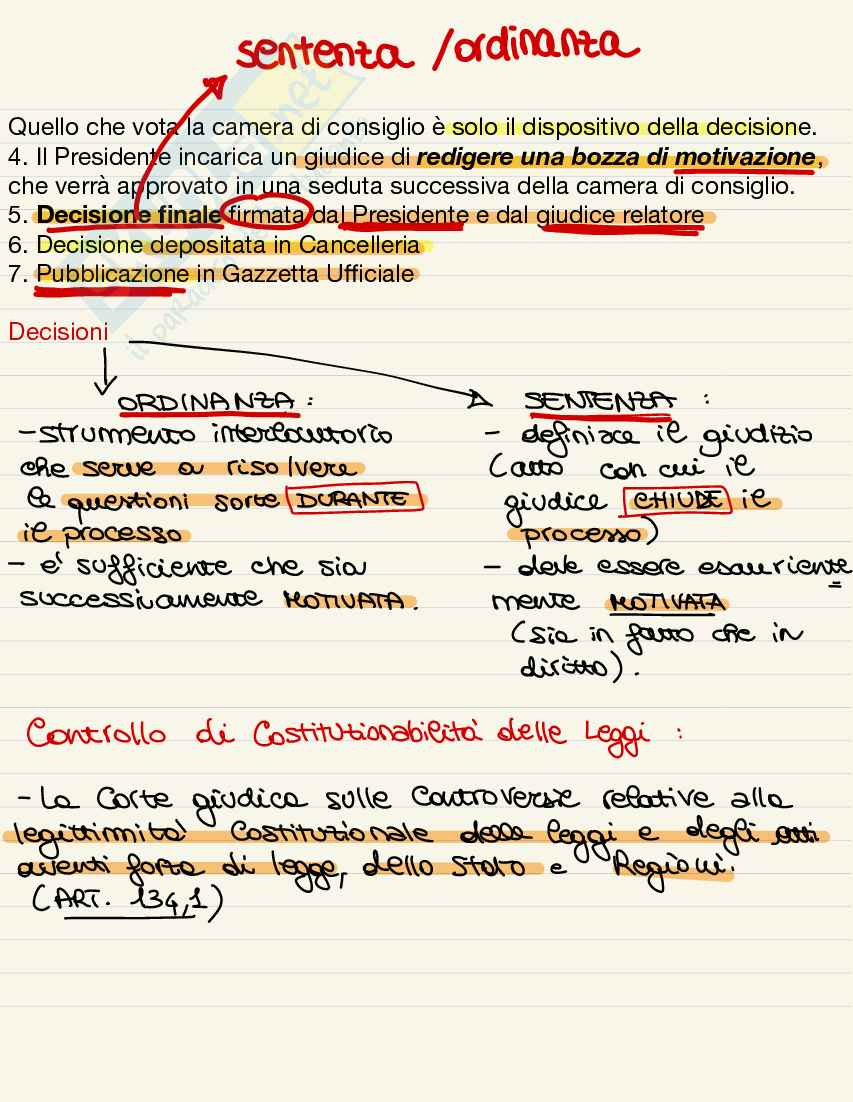 sentenza /ordinanza
Quello che vota la camera di consiglio è solo il dispositivo della decisione.
4. Il Presidente incarica un giudice di redigere una bozza di motivazione,
che verrà approvato in una seduta successiva della camera di consiglio.
5. Decisione finale firmata dal Presidente e dal giudice relatore
6. Decisione depositata in Cancelleria
7. Pubblicazione in Gazzetta Ufficiale
Decisioni
ORDINANZA :
- strumento interlocutorio
che serve a risolvere
le questioni sorte DURANTE
il processo
- e' sufficiente che sia
successivamente MOTIVATA.
SENTENZA :
- definisce il giudizio
(atto con cui il
giudice CHIUDE il
processo)
- deve essere esauriente
mente MOTIVATA
(sia in fatto che in
diritto).
Controllo di Costituzionabilità delle Leggi :
- La Corte giudica sulle Controversie relative alla
legittimità Costituzionale delle leggi e degli atti
aventi forza di legge, dello Stato e Regioni.
(ART. 134,1)